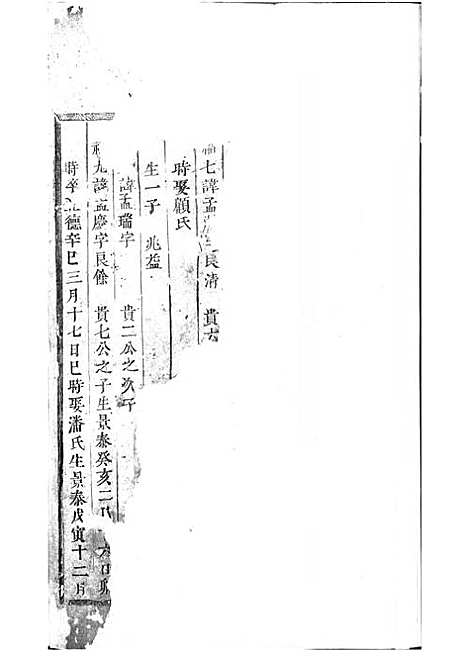 七諱孟良清 貴
時娶顧氏
生一子 兆益
諱孟瑞字 貴二公之次子
九諱孟慶字良餘 貴七公之子生景泰癸亥二月
時卒正德辛巳三月十七日巳時娶潘氏生景泰戊寅十二月